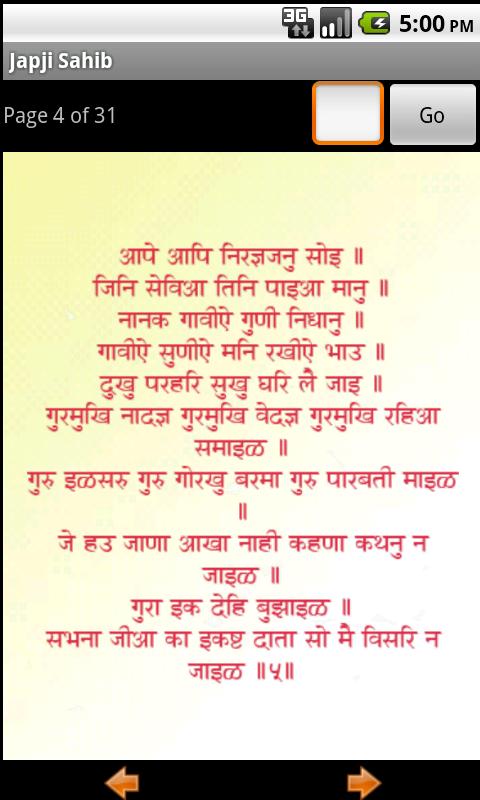 3G
5:00 PM
Japji Sahib
Page 4 of 31
Go
आपे आपि निरज्ञजनु सोइ ॥
जिनि सेविआ तिनि पाइआ मानु ॥
नानक गावीऐ गुणी निधानु ॥
गावीऐ सुणीऐ मनि रखीऐ भाउ ॥
दुखु परहरि सुखु घरि लै जाइ ॥
गुरमुखि नादज्ञ गुरमुखि वेदज्ञ गुरमुखि रहिआ
समाइळ ॥
गुरु इळसरु गुरु गोरखु बरमा गुरु पारबती माइळ
॥
जे हउ जाणा आखा नाही कहणा कथनु न
जाइळ ॥
गुरा इक देहि बुझाइळ ॥
सभना जीआ का इकष्ट दाता सो मै विसरि न
जाइळ ॥५॥